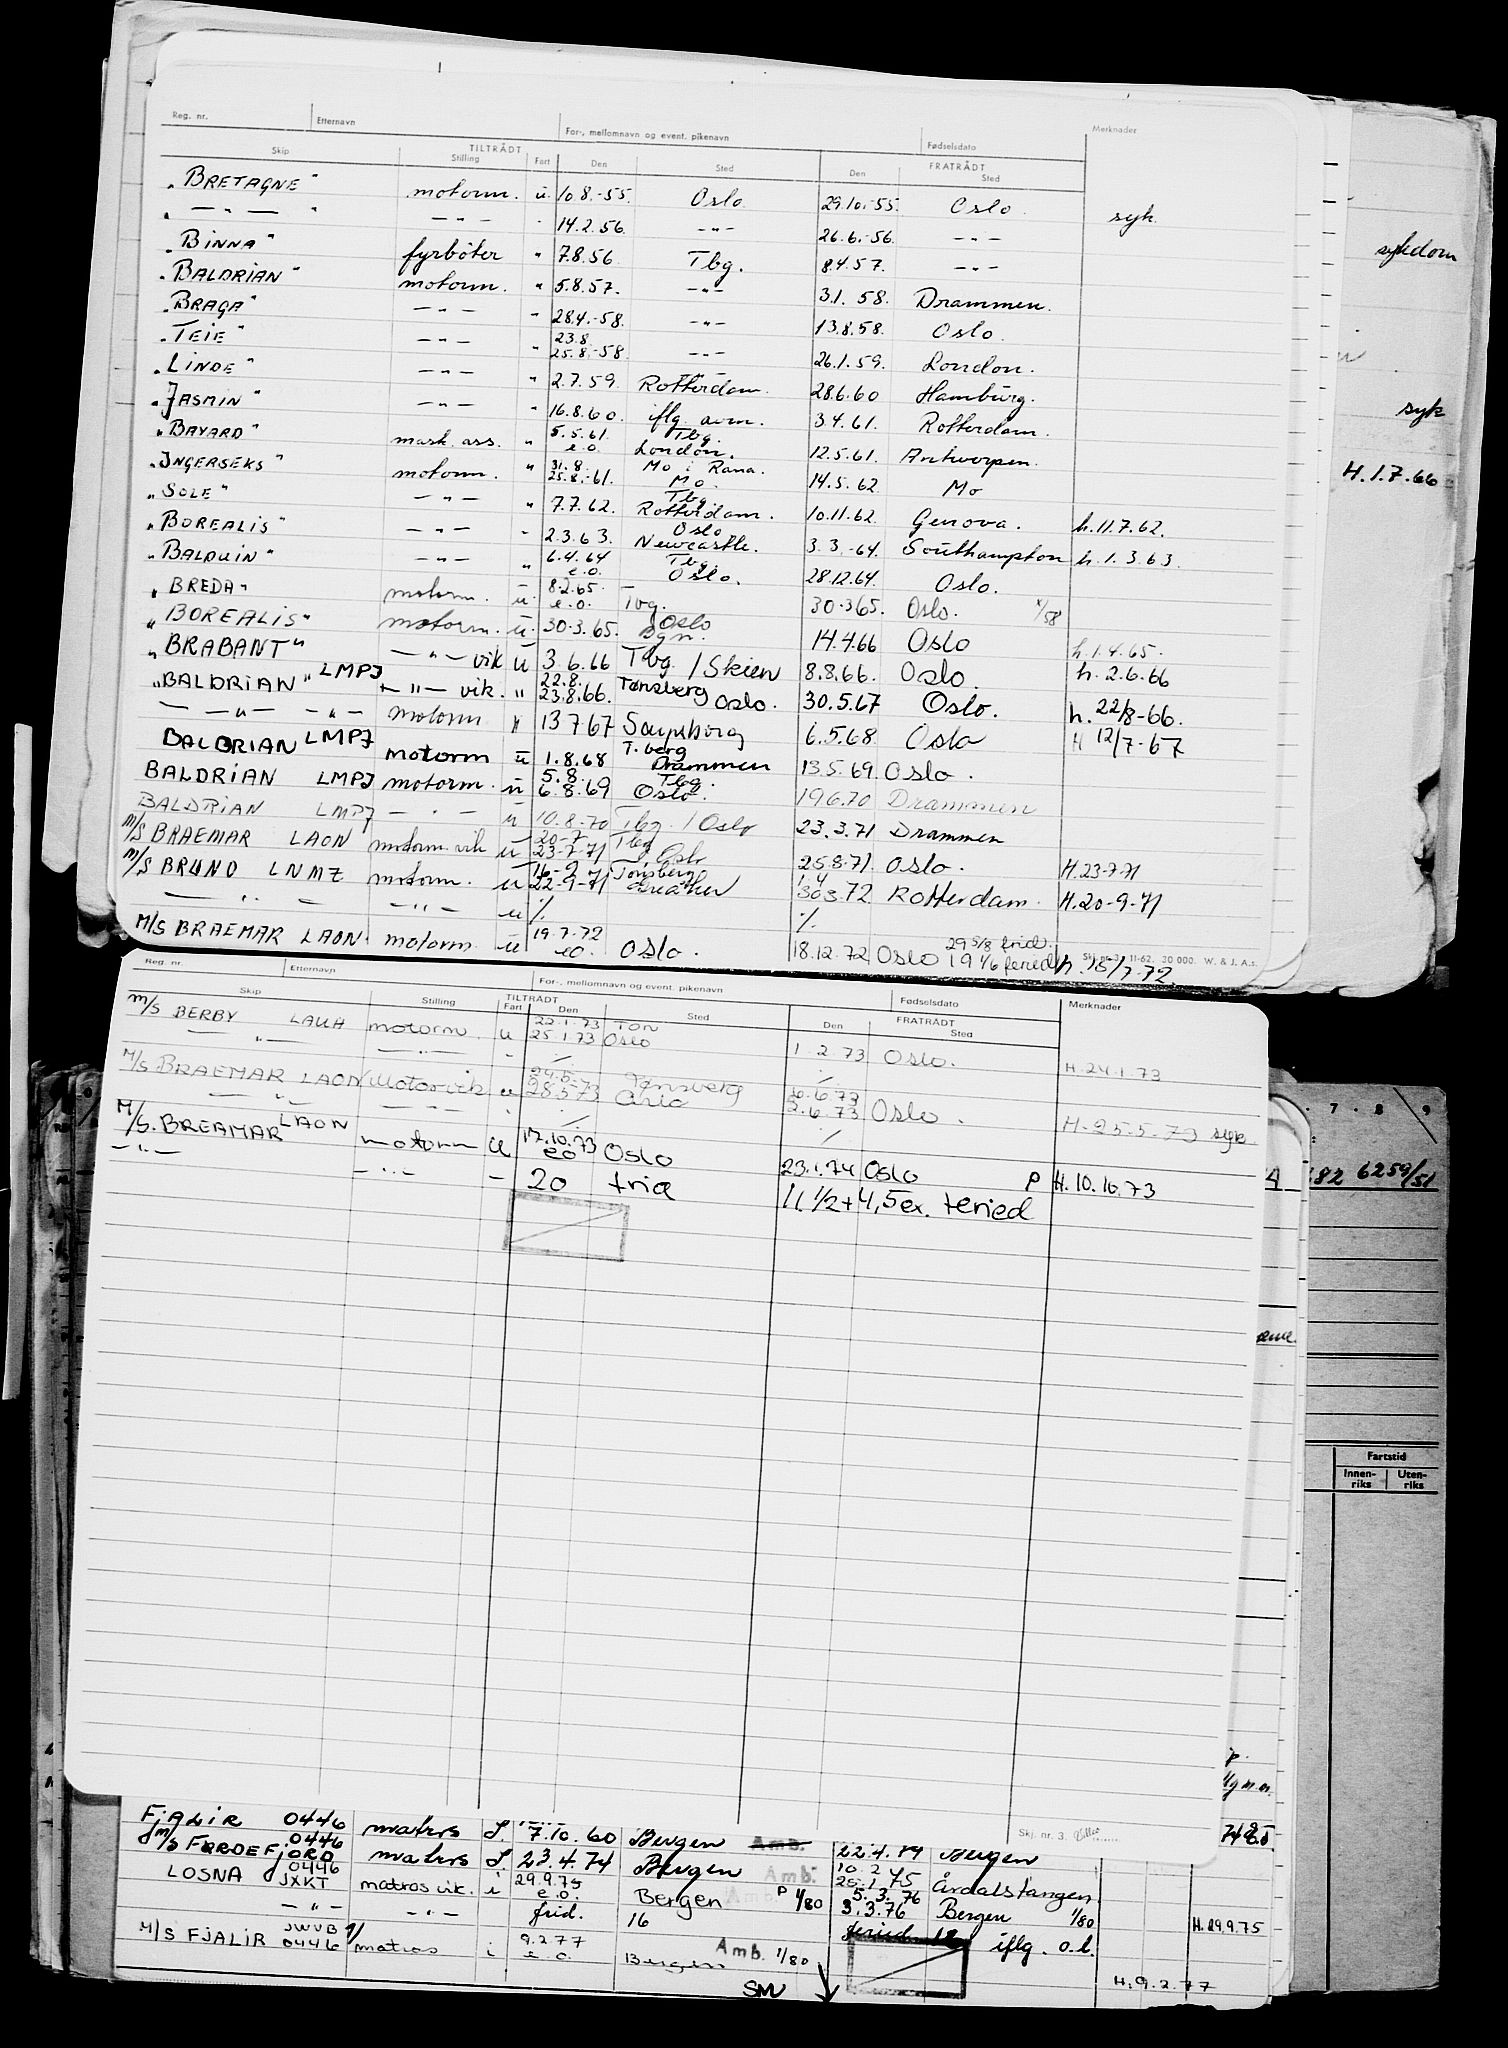 Reg. nr. Etternavn For-, mellomnavn og event. pikenavn Fødselsdato Merknader
Skip TILTRÅDT FRATRÅDT
Stilling Fart Den Sted Den Sted
"BRETAGNE" motorm. u. 10.8.-55. Oslo 29.10.-55. Oslo syk
" — " — " — " — " 14.2.56. — " — 26.6.-56. — " —
"BINNA" fyrbøter " 7.8.56. Tbg. 8.4.57. — " — sykdom
"BALDRIAN" motorm. " 5.8.57. — " — 3.1.58. Drammen.
"BRAGA" — " — " 28.4.-58. — " — 13.8.58. Oslo.
"TEIE" — " — " 23.8. 25.8.-58 — " — 26.1.59. London.
"LINDE" — " — " 2.7.59. Rotterdam. 28.6.60 Hamburg.
"JASMIN" — " — " 16.8.60. iflg. avm. 3.4.61. Rotterdam. syk
"BAYARD" mask. ass. " 5.5.61. e.o. Tbg. London. 12.5.61. Antwerpen.
"INGERSEKS" motorm. " 31.8. 25.8.-61. Mo i Rana. Mo. 14.5.62. Mo H.1.7.66
"SOLE" — " — " 7.7.62. Tbg. Rotterdam. 10.11.62. Genova. h.11.7.62.
"BOREALIS" — " — " 2.3.63. Oslo Newcastle. 3.3.-64. Southampton h.1.3.63.
"BALDUIN" — " — " 6.4.64 e.o. Tbg. Oslo. 28.12.64. Oslo.
"BREDA" motorm. u. 8.2.65. e.o. — Tbg. 30.3.65. Oslo. x/58
"BOREALIS" motorm. u. 30.3.65. Oslo 14.4.66 Oslo h.1.4.65.
"BRABANT" — " — vik u 3.6.66 Tbg. / Skien 8.8.66. Oslo h. 2.6.66
"BALDRIAN" LMPJ — " — vik. " 22.8. 23.8.66. Tønsberg Oslo. 30.5.67 Oslo. h. 22/8-66.
— " — — " — motorm " 13.7.67 Sarpsborg 6.5.68 Oslo H 12/7-67
BALDRIAN LMPJ motorm u 1.8.68 T.berg Drammen 13.5.69 Oslo.
BALDRIAN LMPJ motorm. u 5.8. 6.8.69 Tbg. Oslo. 19.6.70 Drammen
BALDRIAN LMPJ — " — u 10.8.70 Tbg. / Oslo 23.3.71 Drammen
M/S BRAEMAR LAON motorm vik u 20-7- 23-7-71 Tbg Oslo 25.8.71. Oslo. H.23-7-71
M/S BRUNO LNMZ motorm. u 16-9 22-9-71 Tønsberg 30.3.72 Rotterdam. H.20-9-71
— " — — " — u % %
M/S BRAEMAR LAON. motorm. u 19.7.72 eo. Oslo. 18.12.72 Oslo 29 5/8 frid. 19 1/6 feried h. 15/7-72.
Skj. nr. 3. 11-62. 30 000. W. & J. A.s.
Reg. nr. Etternavn For-, mellomnavn og event. pikenavn Fødselsdato Merknader
Skip TILTRÅDT FRATRÅDT
Stilling Fart Den Sted Den Sted
M/S BERBY LAUH motorm. u 22.1.73 25.1.73 Ton Oslo 1.2.73 Oslo. H.24.1.73
— " — — " —
M/S BRAEMAR LAON Motorvik u 24.5. 28.5.73 Tønsberg 6.6.73 5.6.73 Oslo. H.25.5.73 syk
— " — — " —
M/S. BREAMAR LAON motorm u 17.10.73 eo Oslo 23.1.74 Oslo P H.10.10.73
— " — — " — — 20 frid 11.1/2 + 4,5 ex. feried
7 8 9
.82 6259/51
Fartstid
Innenriks Utenriks
Skj. nr. 3.
FJALIR 0446 matros I. 7.10.60 Bergen Amb. 22.4.74 Bergen
M/S FØRDEFJORD 0446 matros I. 23.4.74 Bergen Amb. 10.2 25.1.75 Årdalstangen
LOSNA 0446 JXKT matros vik. i 29.9.75 e.o. Bergen Amb P 1/80 5.3.76 3.3.76 Bergen 1/80 H.29.9.75
— " — — " — frid. 16 feried. 12 iflg. o.l.
M/S FJALIR JWVB 0446 matros i 9.2.77 e.o. Bergen Amb. 1/80 H.9.2.77
SMV